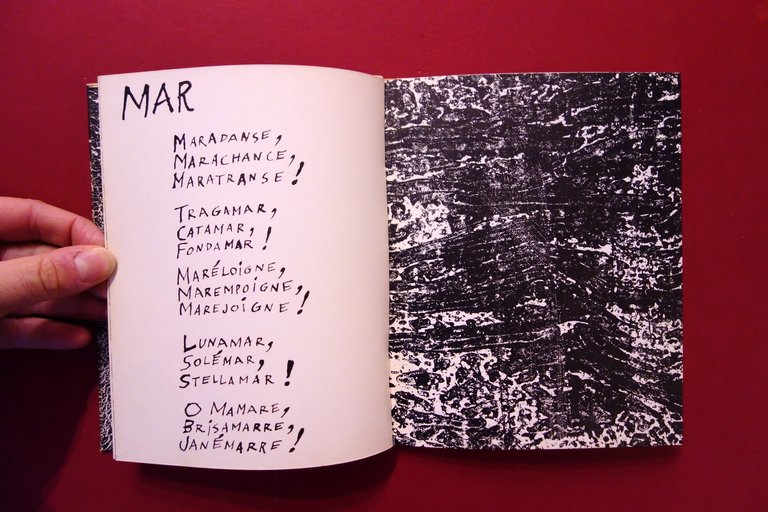 MAR
MARADANSE,
MARACHANCE,
MARATRANSE!
TRAGAMAR,
CATAMAR,
FONDAMAR!
MARÉLOIGNE,
MAREMPOIGNE,
MAREJOIGNE!
LUNAMAR,
SOLÉMAR,
STELLAMAR!
O MAMARE,
BRISAMARRE,
JANÉMARRE!